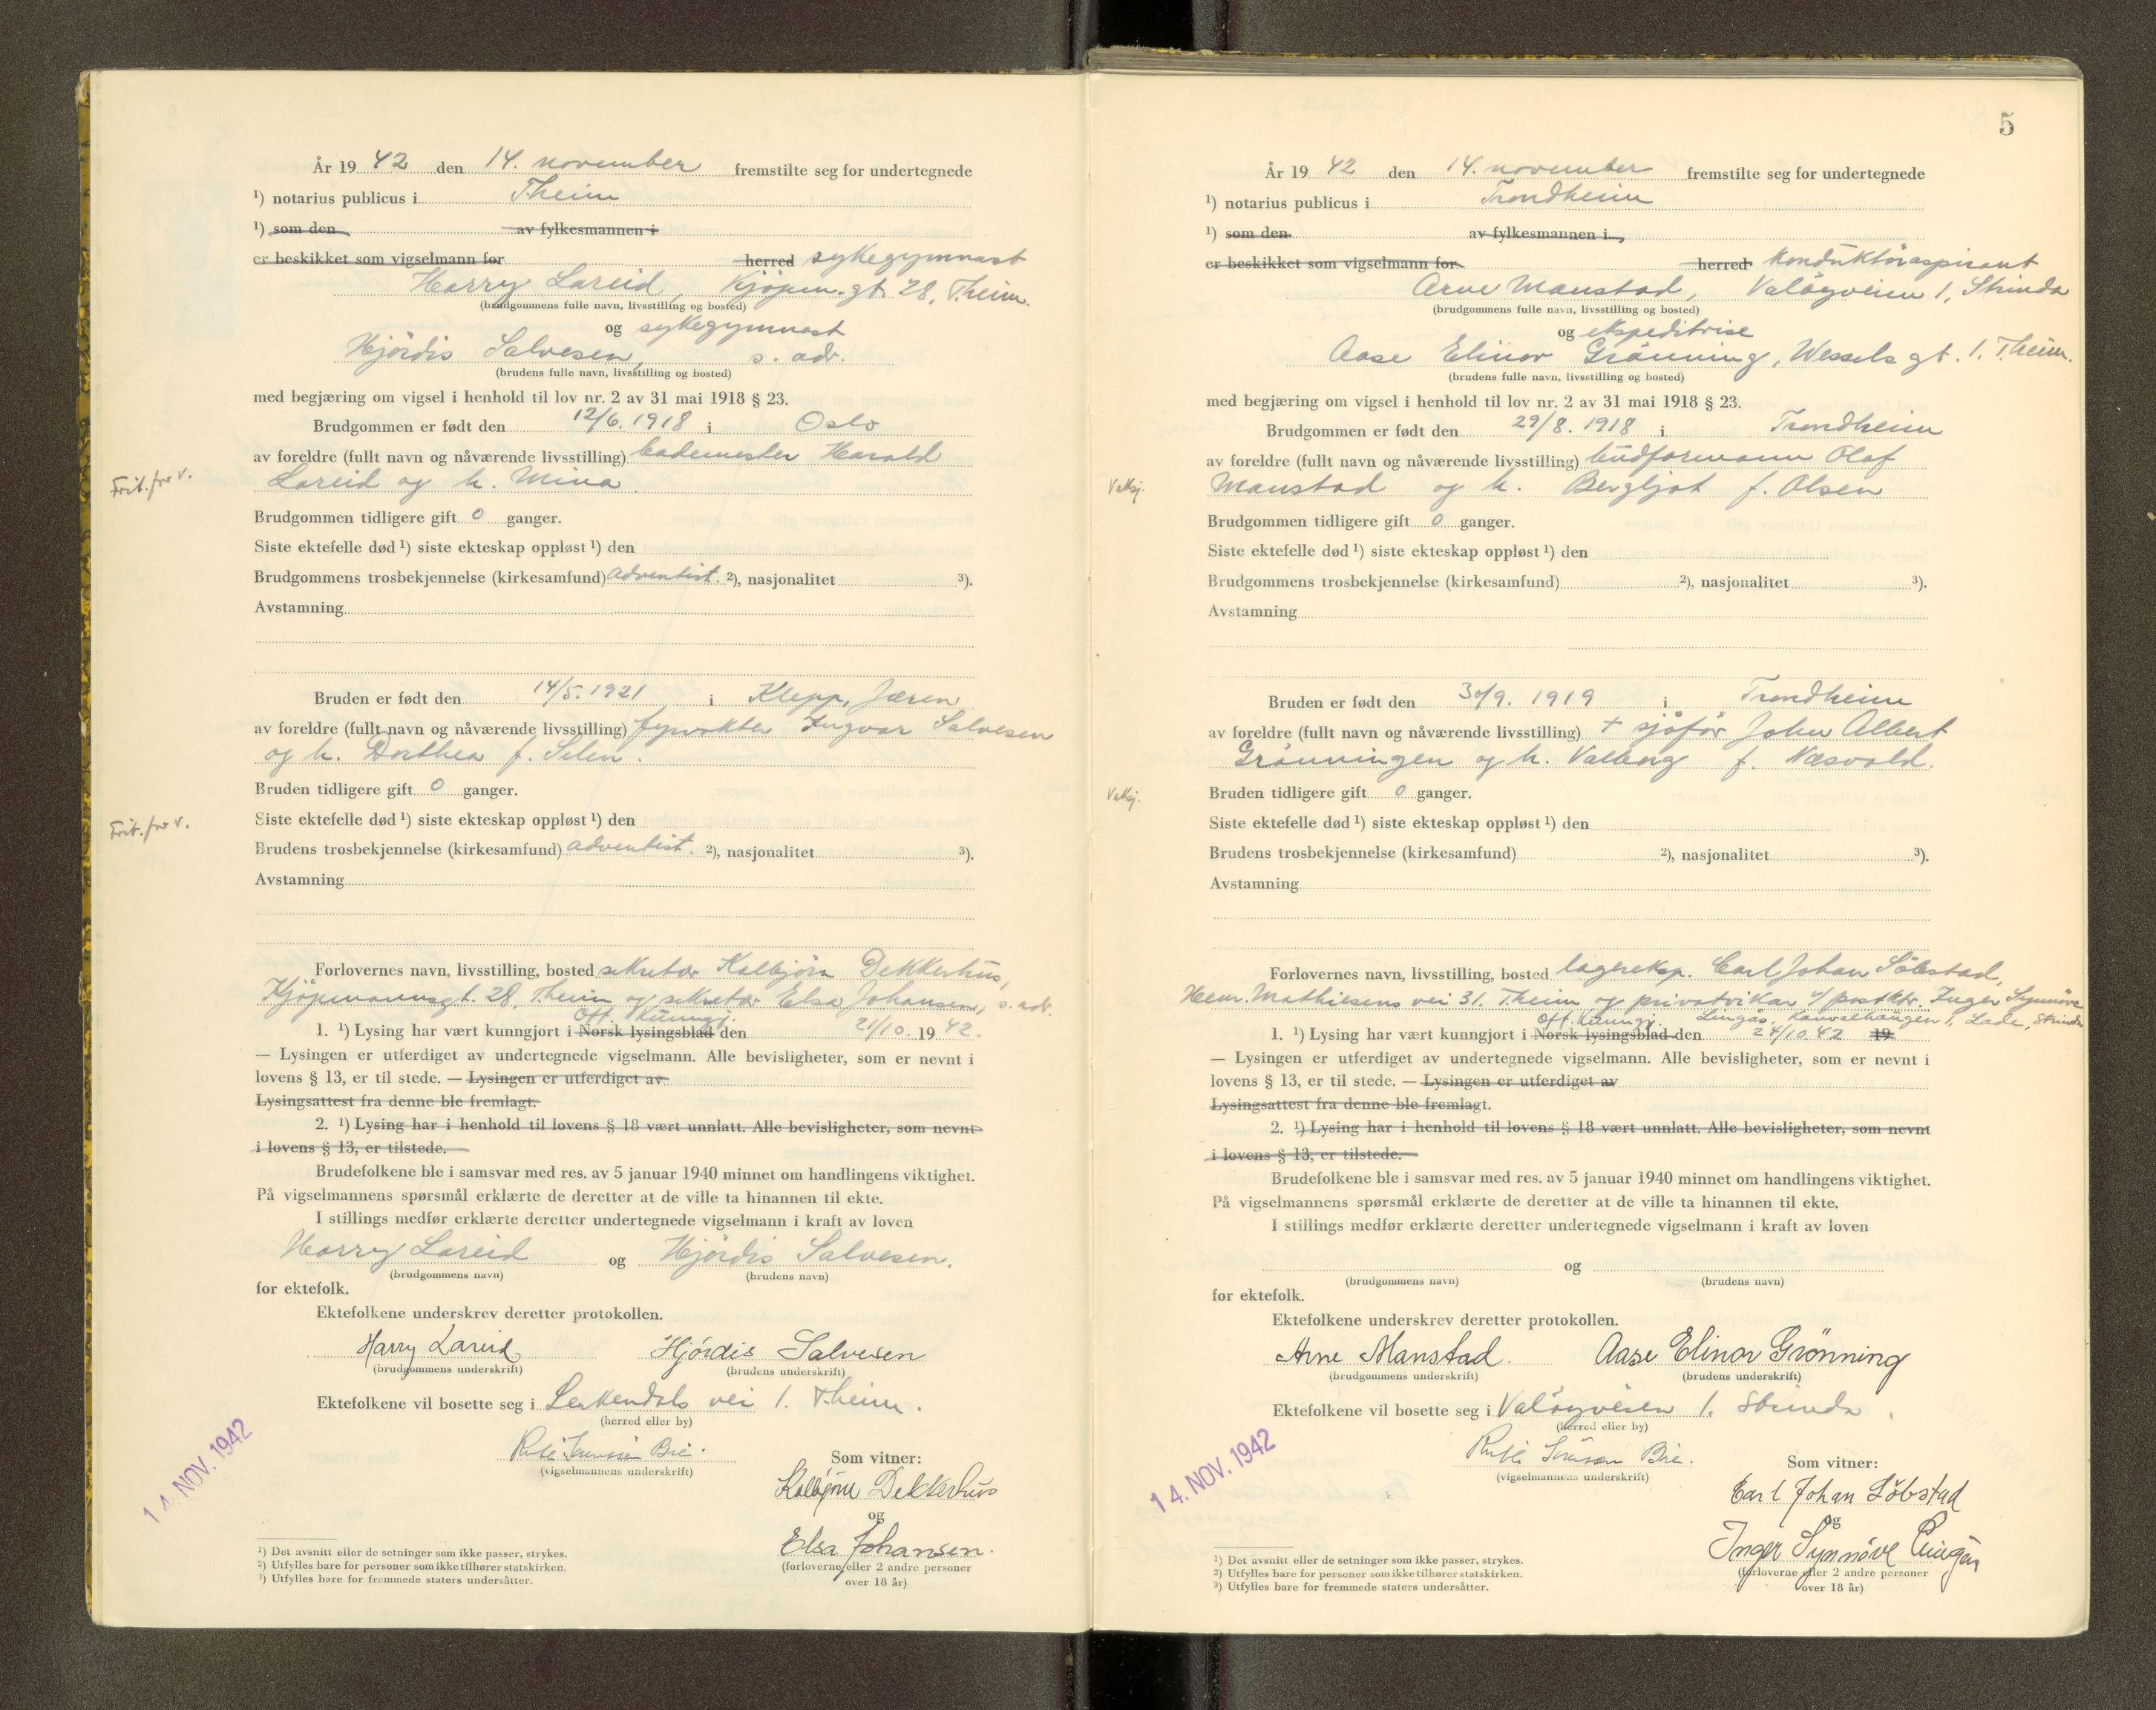 År 19 42 den 14. november fremstilte seg for undertegnede
¹) notarius publicus i T.heim
¹) som den av fylkesmannen i
er beskikket som vigselmann for herred sykegymnast
Harry Lareid, Kjöpm.gt. 28, T.heim.
(brudgommens fulle navn, livsstilling og bosted)
og sykegymnast
Hjördis Salvesen, s. adr.
(brudens fulle navn, livsstilling og bosted)
med begjæring om vigsel i henhold til lov nr. 2 av 31 mai 1918 § 23.
Brudgommen er født den 12/6. 1918 i Oslo
av foreldre (fullt navn og nåværende livsstilling) bademester Harald
Frit. for v.
Lareid og h. Mina.
Brudgommen tidligere gift 0 ganger.
Siste ektefelle død ¹) siste ekteskap oppløst ¹) den
Brudgommens trosbekjennelse (kirkesamfund) adventist. ²), nasjonalitet ³).
Avstamning
Bruden er født den 14/5. 1921 i Klepp, Jæren
av foreldre (fullt navn og nåværende livsstilling) fyrvokter Ingvar Salvesen
og h. Dorthea f. Selen.
Bruden tidligere gift 0 ganger.
Frit. for v.
Siste ektefelle død ¹) siste ekteskap oppløst ¹) den
Brudens trosbekjennelse (kirkesamfund) adventist. ²), nasjonalitet ³).
Avstamning
Forlovernes navn, livsstilling, bosted sekretær Kolbjörn Dekkerhus,
Kjöpmannsgt. 28, T.heim og sekretær Elsa Johansen, s. adr.
Off. Kunngj.
1. ¹) Lysing har vært kunngjort i Norsk lysingsblad den 21/10. 19 42.
— Lysingen er utferdiget av undertegnede vigselmann. Alle bevisligheter, som er nevnt i
lovens § 13, er til stede. — Lysingen er utferdiget av
Lysingsattest fra denne ble fremlagt.
2. ¹) Lysing har i henhold til lovens § 18 vært unnlatt. Alle bevisligheter, som nevnt
i lovens § 13, er tilstede.
Brudefolkene ble i samsvar med res. av 5 januar 1940 minnet om handlingens viktighet.
På vigselmannens spørsmål erklærte de deretter at de ville ta hinannen til ekte.
I stillings medfør erklærte deretter undertegnede vigselmann i kraft av loven
Harry Lareid og Hjördis Salvesen.
(brudgommens navn) (brudens navn)
for ektefolk.
Ektefolkene underskrev deretter protokollen.
Harry Lareid Hjördis Salvesen
(brudgommens underskrift) (brudens underskrift)
Ektefolkene vil bosette seg i Lerkendals vei 1. T.heim.
(herred eller by)
14. NOV. 1942
Bie.
(vigselmannens underskrift)
Som vitner:
Kolbjörn Dekkerhus
og
Elsa Johansen.
(forloverne eller 2 andre personer
over 18 år)
¹) Det avsnitt eller de setninger som ikke passer, strykes.
²) Utfylles bare for personer som ikke tilhører statskirken.
³) Utfylles bare for fremmede staters undersåtter.
5
År 19 42 den 14. november fremstilte seg for undertegnede
¹) notarius publicus i Trondheim
¹) som den av fylkesmannen i
er beskikket som vigselmann for herred konduktöraspirant
Arne Manstad, Valöyveien 1, Strinda
(brudgommens fulle navn, livsstilling og bosted)
og ekspeditrise
Aase Elinor Grönning, Wessels gt. 1. T.heim.
(brudens fulle navn, livsstilling og bosted)
med begjæring om vigsel i henhold til lov nr. 2 av 31 mai 1918 § 23.
Brudgommen er født den 29/8. 1918 i Trondheim
av foreldre (fullt navn og nåværende livsstilling) budformann Olaf
Vaksj.
Manstad og h. Bergljot f. Olsen
Brudgommen tidligere gift 0 ganger.
Siste ektefelle død ¹) siste ekteskap oppløst ¹) den
Brudgommens trosbekjennelse (kirkesamfund) ²), nasjonalitet ³).
Avstamning
Bruden er født den 30/9. 1919 i Trondheim
av foreldre (fullt navn og nåværende livsstilling) + sjåför John Albert
Grönningen og h. Valborg f. Næsvold.
Vaksj.
Bruden tidligere gift 0 ganger.
Siste ektefelle død ¹) siste ekteskap oppløst ¹) den
Brudens trosbekjennelse (kirkesamfund) ²), nasjonalitet ³).
Avstamning
Forlovernes navn, livsstilling, bosted lagereksp. Carl Johan Söbstad,
Henr. Mathiesens vei 31. T.heim og privatvikar v/ postktr. Inger Synnöve
Off. Kunngj. Lingås, Lade, Strinda
1. ¹) Lysing har vært kunngjort i Norsk lysingsblad den 24/10 42 19
— Lysingen er utferdiget av undertegnede vigselmann. Alle bevisligheter, som er nevnt i
lovens § 13, er til stede. — Lysingen er utferdiget av
Lysingsattest fra denne ble fremlagt.
2. ¹) Lysing har i henhold til lovens § 18 vært unnlatt. Alle bevisligheter, som nevnt
i lovens § 13, er tilstede.
Brudefolkene ble i samsvar med res. av 5 januar 1940 minnet om handlingens viktighet.
På vigselmannens spørsmål erklærte de deretter at de ville ta hinannen til ekte.
I stillings medfør erklærte deretter undertegnede vigselmann i kraft av loven
og
(brudgommens navn) (brudens navn)
for ektefolk.
Ektefolkene underskrev deretter protokollen.
Arne Manstad. Aase Elinor Grönning
(brudgommens underskrift) (brudens underskrift)
Ektefolkene vil bosette seg i Valöyveien 1. Strinda.
(herred eller by)
14. NOV. 1942
Bie.
(vigselmannens underskrift)
Som vitner:
Carl Johan Söbstad
og
Inger Synnöve Lingås
(forloverne eller 2 andre personer
over 18 år)
¹) Det avsnitt eller de setninger som ikke passer, strykes.
²) Utfylles bare for personer som ikke tilhører statskirken.
³) Utfylles bare for fremmede staters undersåtter.